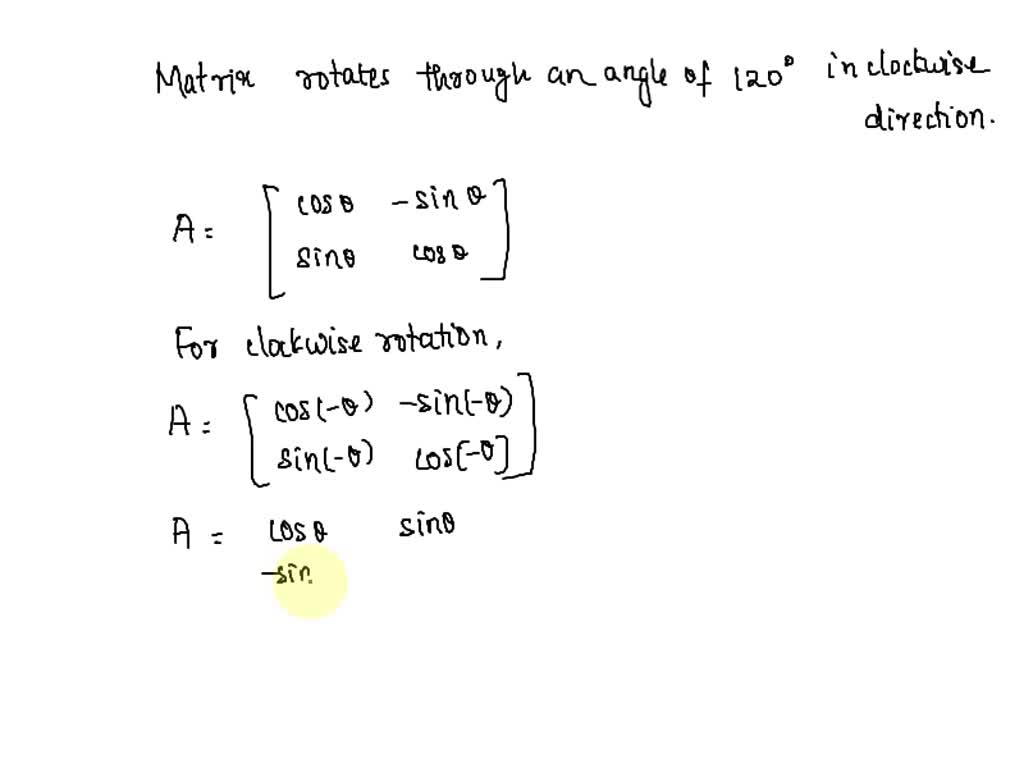 Matrix rotates through an angle of 120° in clockwise
direction.
A = [ cosθ -sinθ ]
[ sinθ cosθ ]
For clockwise rotation,
A = [ cos(-θ) -sin(-θ) ]
[ sin(-θ) cos[-θ] ]
A = cosθ sinθ
-sin